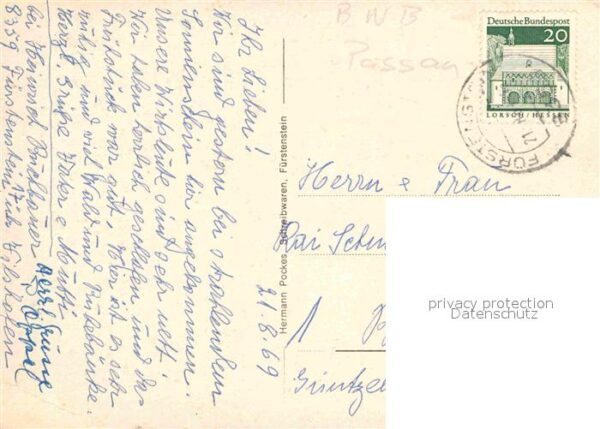 21.8.69
Ihr Lieben!
Wir sind gestern bei strahlendem
Sonnenschein hier angekommen.
Unsere Wirtsleute sind sehr nett.
Wir haben herrlich geschlafen und das
Frühstück war gut. Hier ist es sehr
ruhig und viel Wald und Ruhebänke.
Herzl. Grüße Vater & Mutti
bei Heinrich
8359 Fürstenstein
Hermann Pockes, Schreibwaren, Fürstenstein
B W B
Passau
Deutsche Bundespost
20
LORSCH / HESSEN
Herrn & Frau
1
privacy protection
Datenschutz